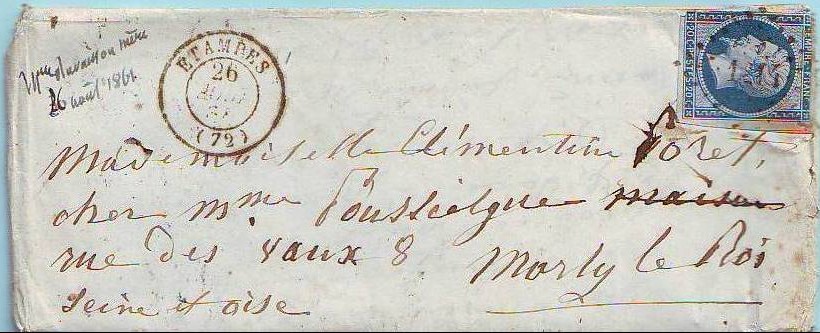 26 août 1861
ETAMPES
26
(72)
EMPIRE FRANC
20 C POSTES 20 C
Mademoiselle Clémentine Foret,
cher mme Poussielgue maison
rue des vaux 8 Marly le Roi
Seine et oise